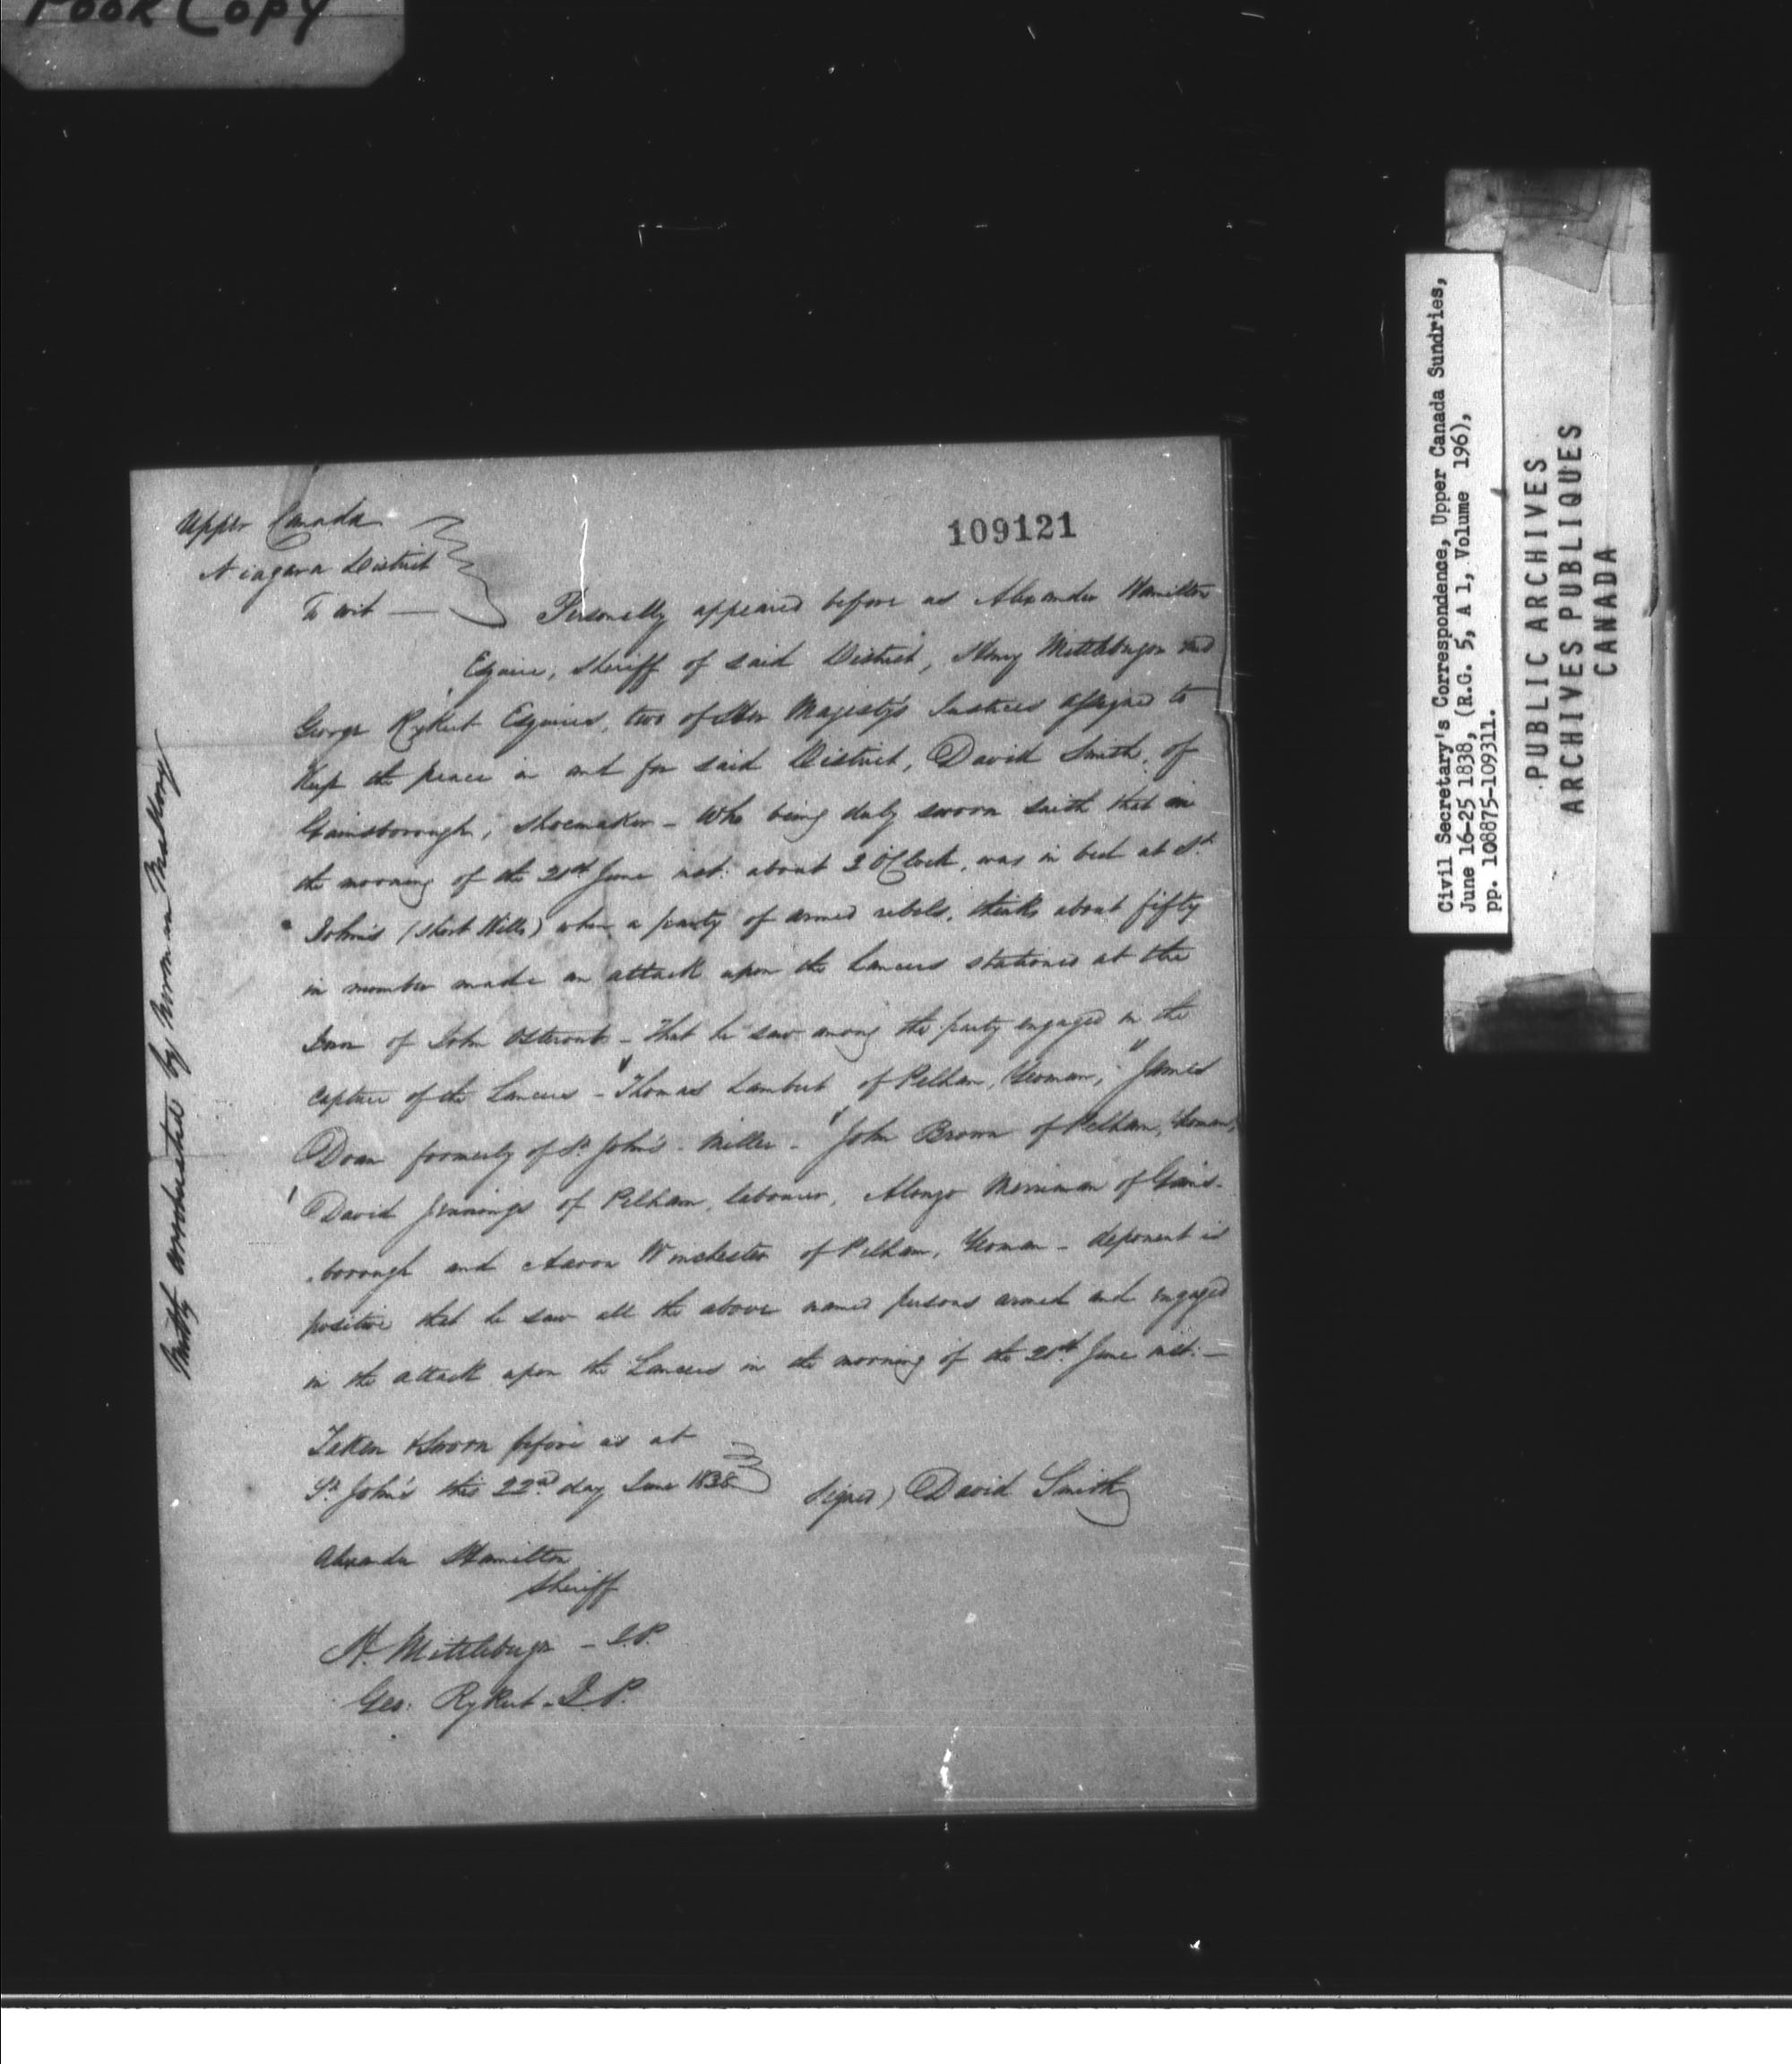 POOR COPY
109121
Upper Canada
Niagara District
To wit — Personally appeared before us Alexander Hamilton
Esquire, Sheriff of said District, Henry Mittleburger and
George Rykert Esquires, two of Her Majesty's Justices assigned to
keep the peace in and for said District, David Smith, of
Gainsborough, Shoemaker – Who being duly sworn saith that in
the morning of the 21st June inst: about 2 O'Clock, was in bed at St.
John's (Short Hills) when a party of armed rebels, thinks about fifty
in number made an attack upon the Lancers stationed at the
Inn of John Osterout – that he saw among the party engaged in the
capture of the Lancers – Thomas Lambert of Pelham, Yeoman, James
Doan formerly of St. John's – Miller – John Brown of Pelham, Yeoman,
David Jennings of Pelham, labourer, Alonzo Merriman of Gains-
borough and Aaron Winchester of Pelham, Yeoman – deponent is
positive that he saw all the above named persons armed and engaged
in the attack upon the Lancers in the morning of the 21st June inst: –
Taken & Sworn before us at
St. John's this 22nd day June 1838
Signed) David Smith
Alexander Hamilton
Sheriff
H. Mittleburger – J.P.
Geo: Rykert – J.P.
corroborated by Norman Mallory
Civil Secretary's Correspondence, Upper Canada Sundries,
June 16-25 1838, (R.G. 5, A 1, Volume 196),
pp. 108875-109311.
PUBLIC ARCHIVES
ARCHIVES PUBLIQUES
CANADA